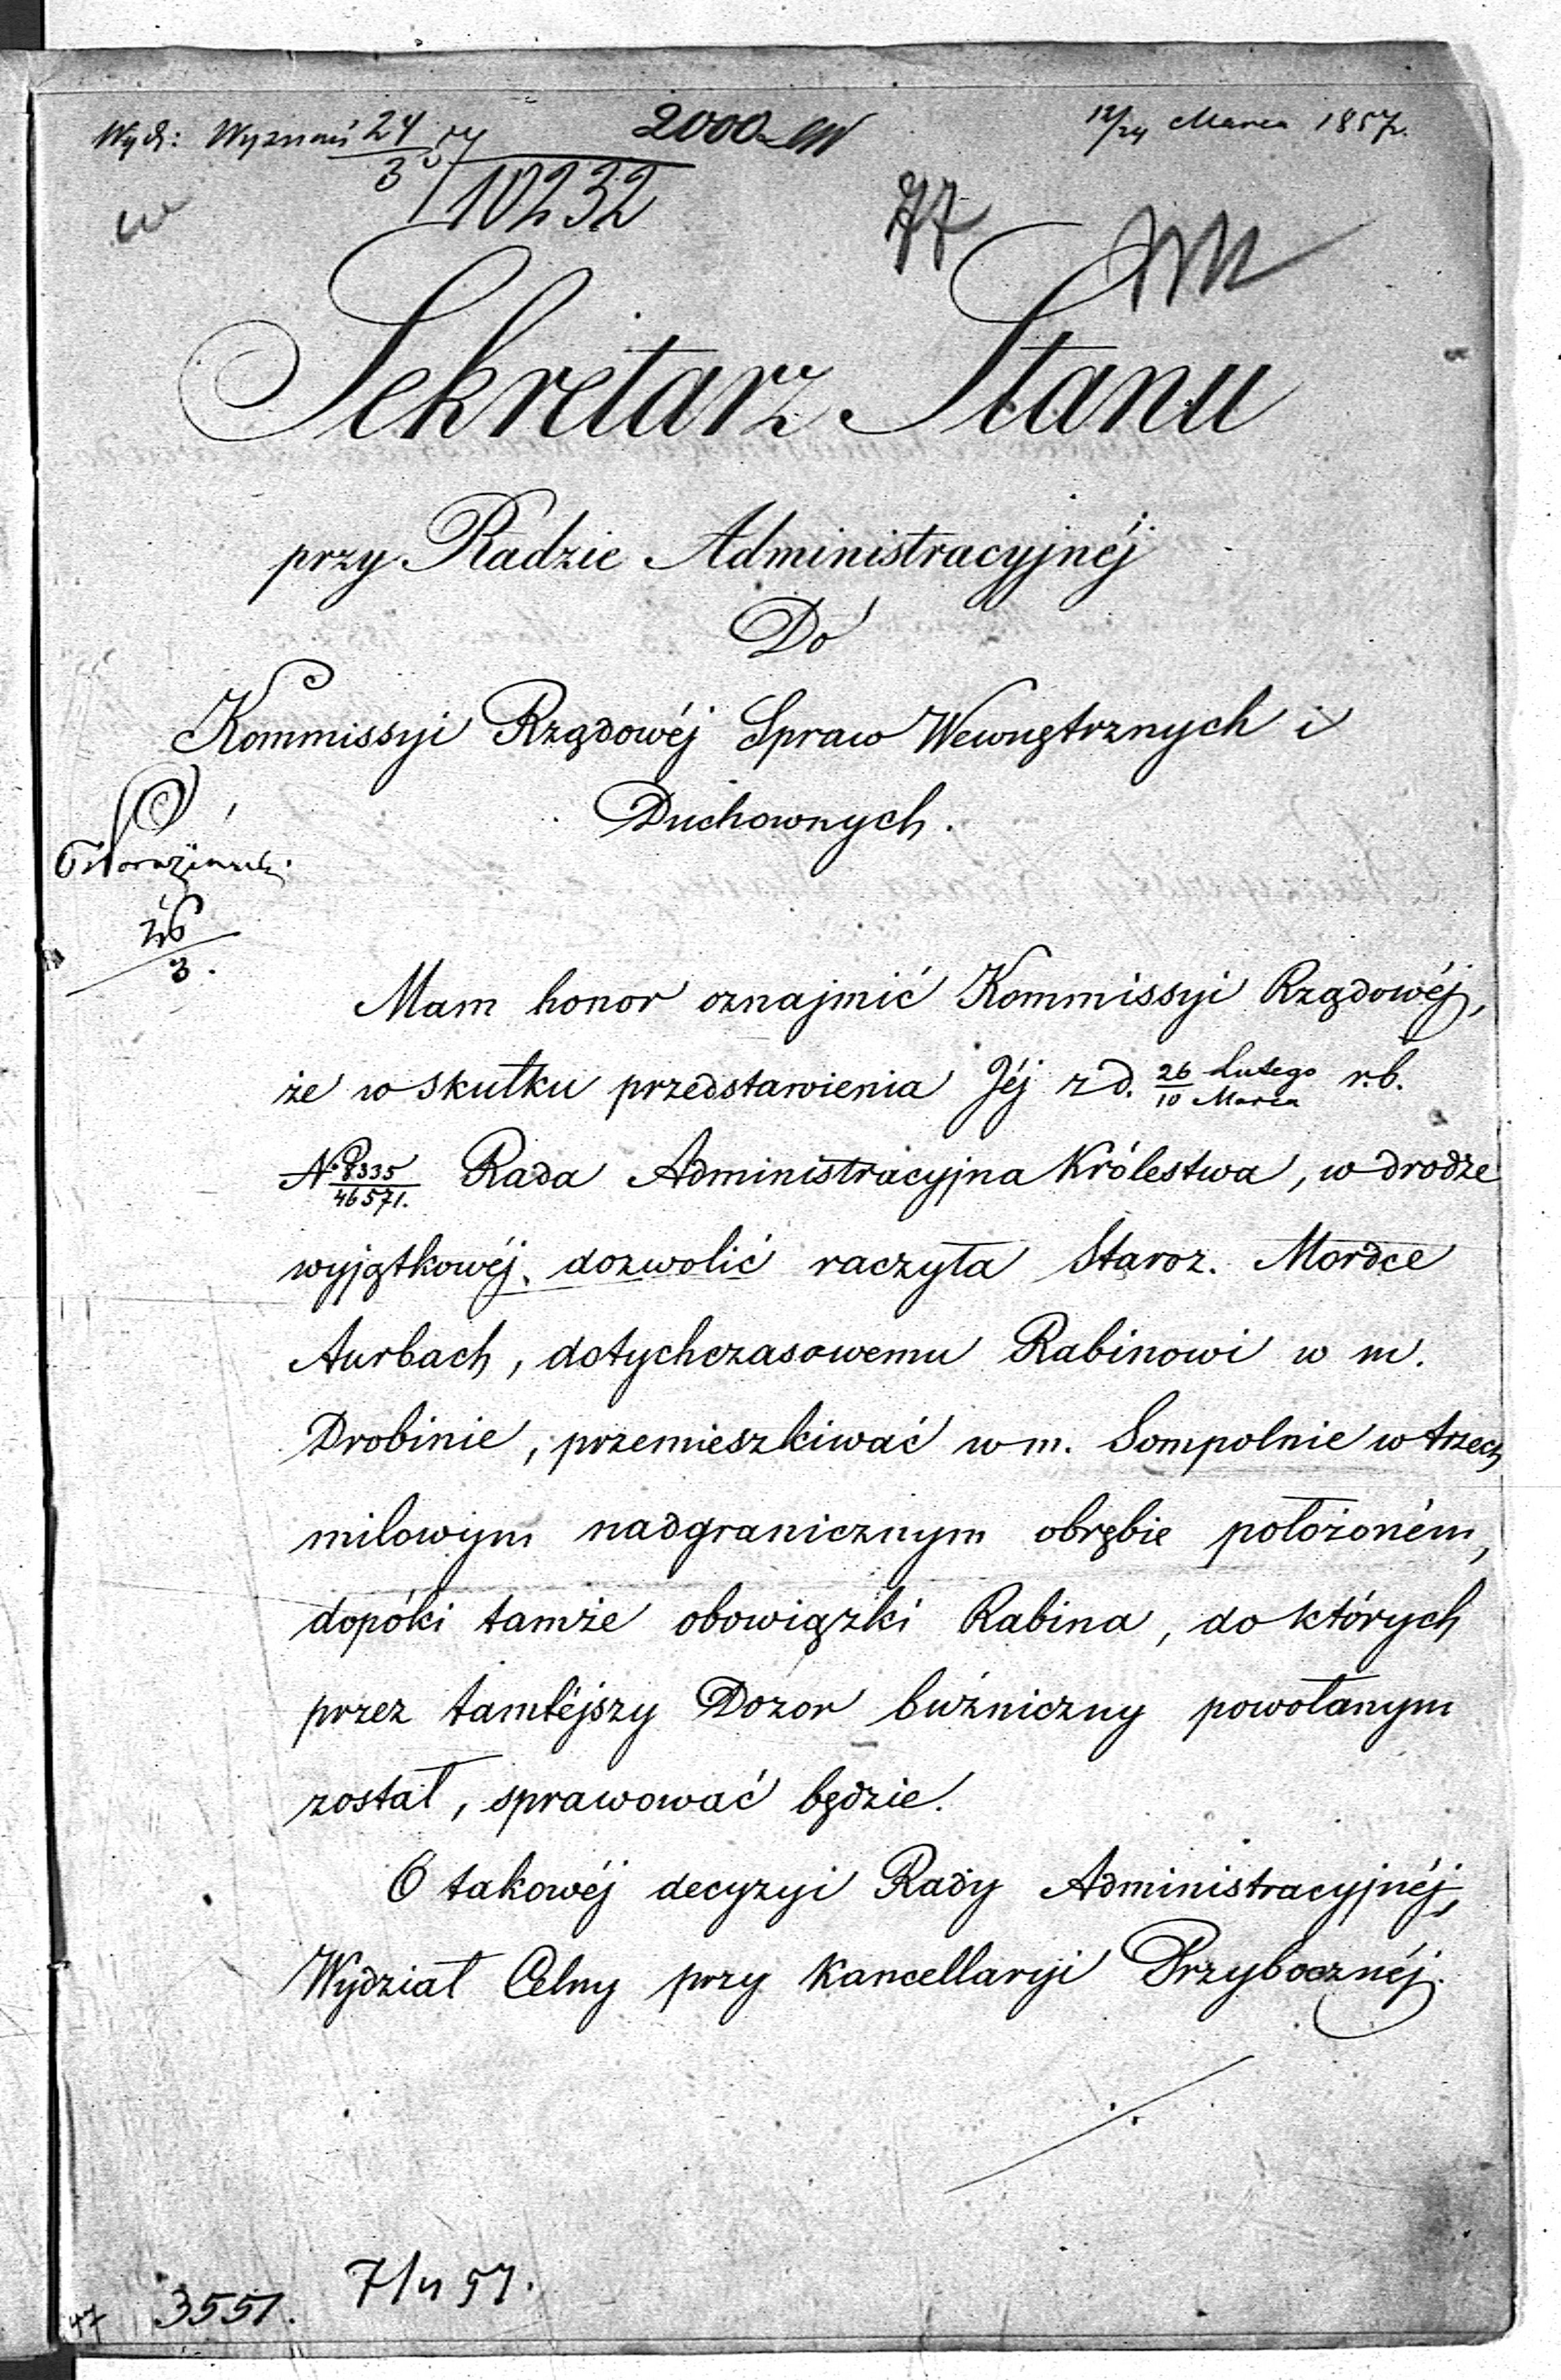 Wydz: Wyznań 24/3
2000
12/24 Marca 1857 r.
10232
77
Sekretarz Stanu
przy Radzie Administracyjnéj
Do
Kommissyi Rządowéj Spraw Wewnętrznych i
Duchownych.
26/3.
Mam honor oznajmić Kommissyi Rządowéj,
że w skutku przedstawienia Jéj z d. 26 Lutego/10 Marca r.b.
№ 8335/46571. Rada Administracyjna Królestwa, w drodze
wyjątkowéj, dozwolić raczyła Staroz. Mordce
Aurbach, dotychczasowemu Rabinowi w m.
Drobinie, przemieszkiwać w m. Sompolnie w trzech
milowym nadgranicznym obrębie położoném,
dopóki tamże obowiązki Rabina, do których
przez tamtéjszy Dozor bużniczny powołanym
został, sprawować będzie.
O takowéj decyzyi Rady Administracyjnéj,
Wydział Celny przy Kancellaryi Przybocznéj
./.
3551.
47